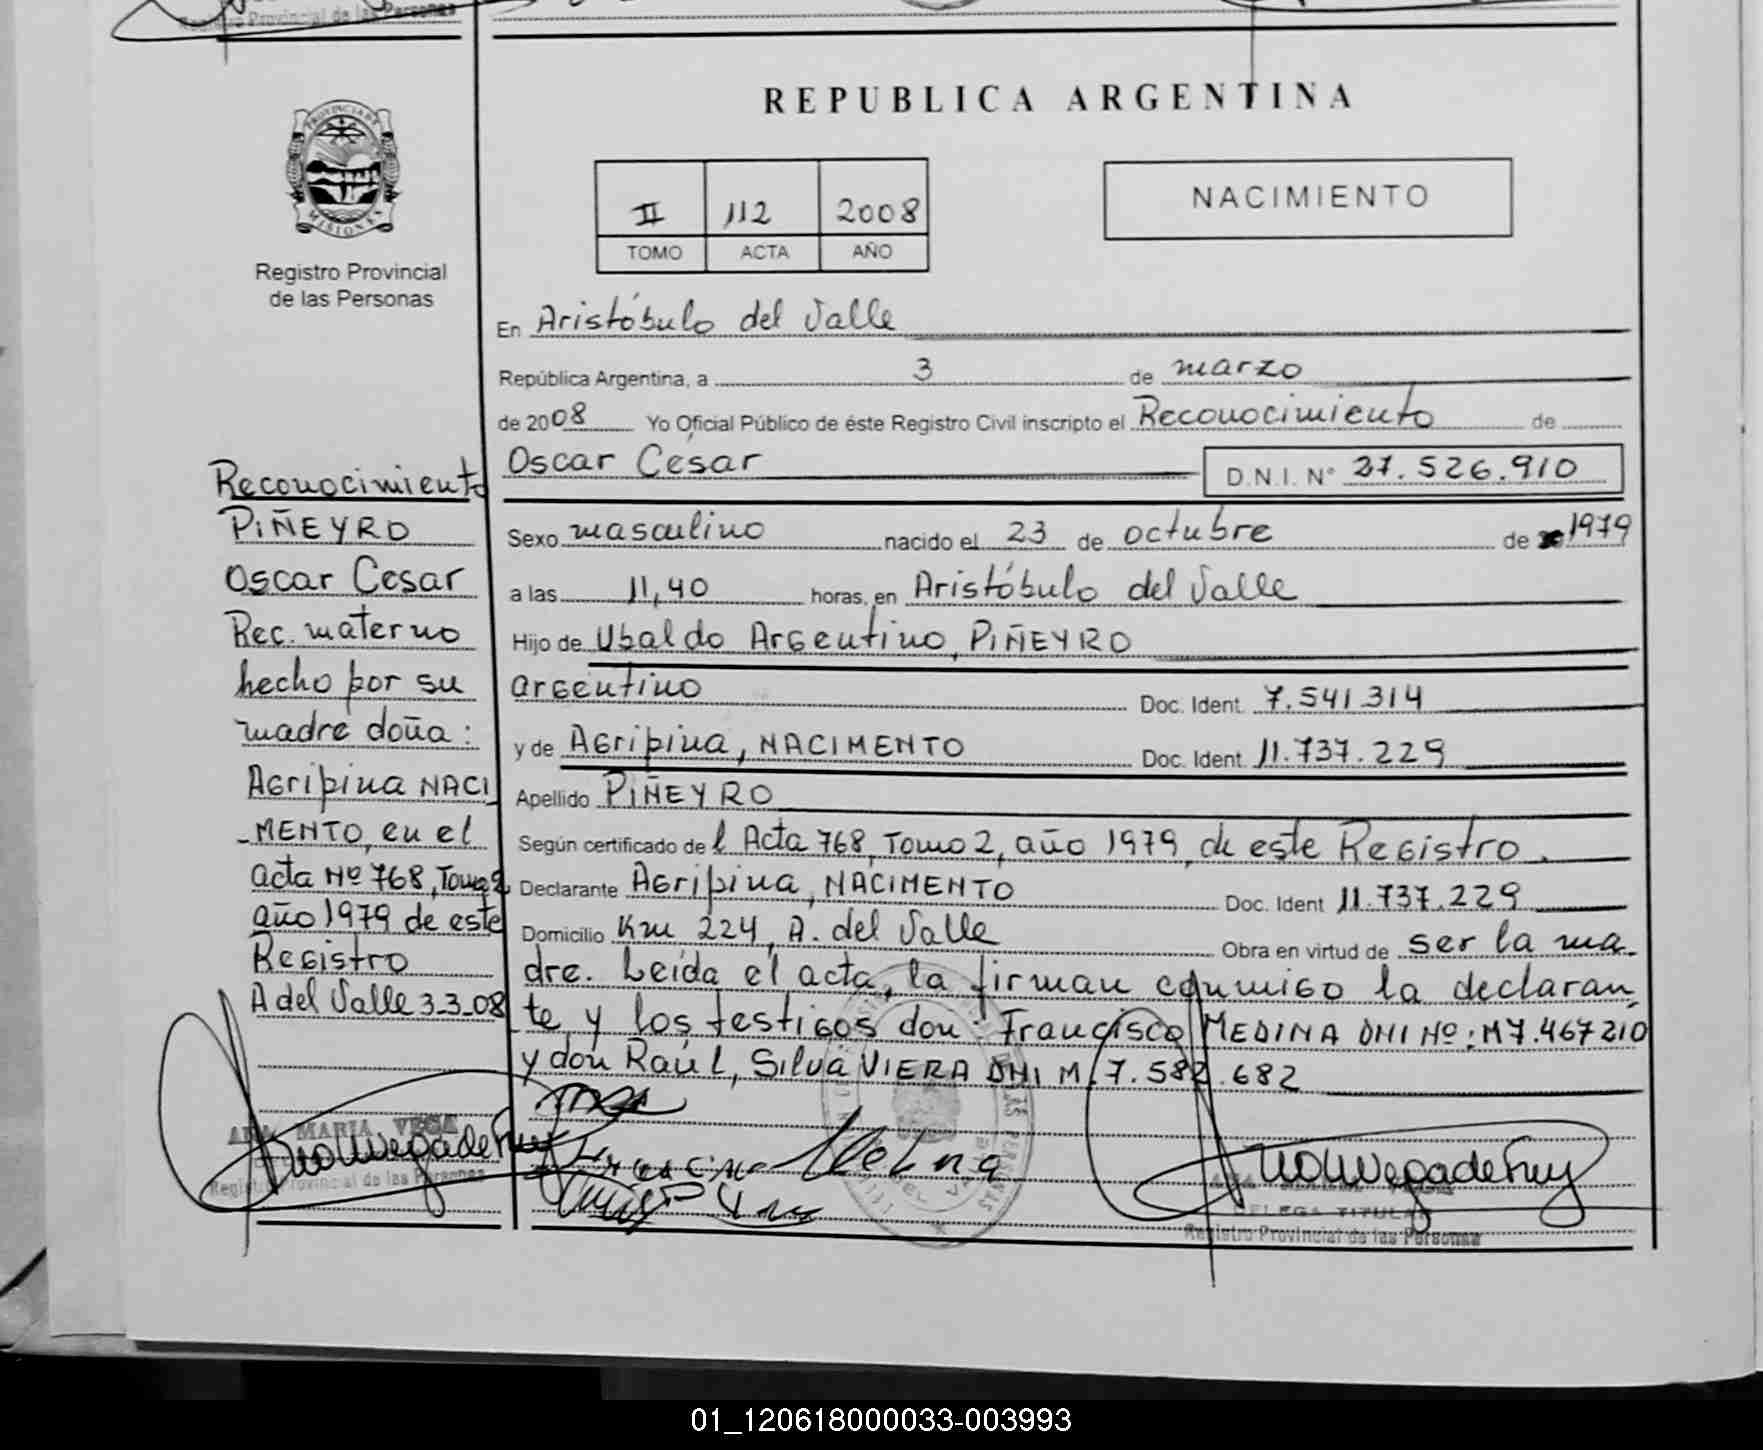 Registro Provincial de las Personas
REPUBLICA ARGENTINA
PROVINCIA DE
MISIONES
Registro Provincial
de las Personas
II 112 2008
TOMO ACTA AÑO
NACIMIENTO
En Aristóbulo del Valle
República Argentina, a 3 de marzo
de 2008 Yo Oficial Público de éste Registro Civil inscripto el Reconocimiento de
Oscar Cesar D.N.I. N° 27.526.910
Sexo masculino nacido el 23 de octubre de 1979
a las 11,40 horas, en Aristóbulo del Valle
Hijo de Ubaldo Argentino, PIÑEYRO
argentino Doc. Ident. 7.541.314
y de Agripina, NACIMENTO Doc. Ident. 11.737.229
Apellido PIÑEYRO
Según certificado de l Acta 768, Tomo 2, año 1979, de este Registro.
Declarante Agripina, NACIMENTO Doc. Ident 11.737.229
Domicilio Km 224, A. del Valle Obra en virtud de ser la ma-
dre. Leída el acta, la firman conmigo la declaran
te y los testigos don: Francisco MEDINA DNI Nº: M7.467210
y don Raúl, Silva VIERA DNI M.7.582.682
Reconocimiento
PIÑEYRO
Oscar Cesar
Rec. materno
hecho por su
madre doña:
Agripina NACI
-MENTO, en el
acta Nº 768, Tomo 2
año 1979 de este
Registro
A del Valle 3-3-08
ANA MARIA VEGA
Registro Provincial de las Personas
DELEGA TITULAR
Registro Provincial de las Personas
01_120618000033-003993